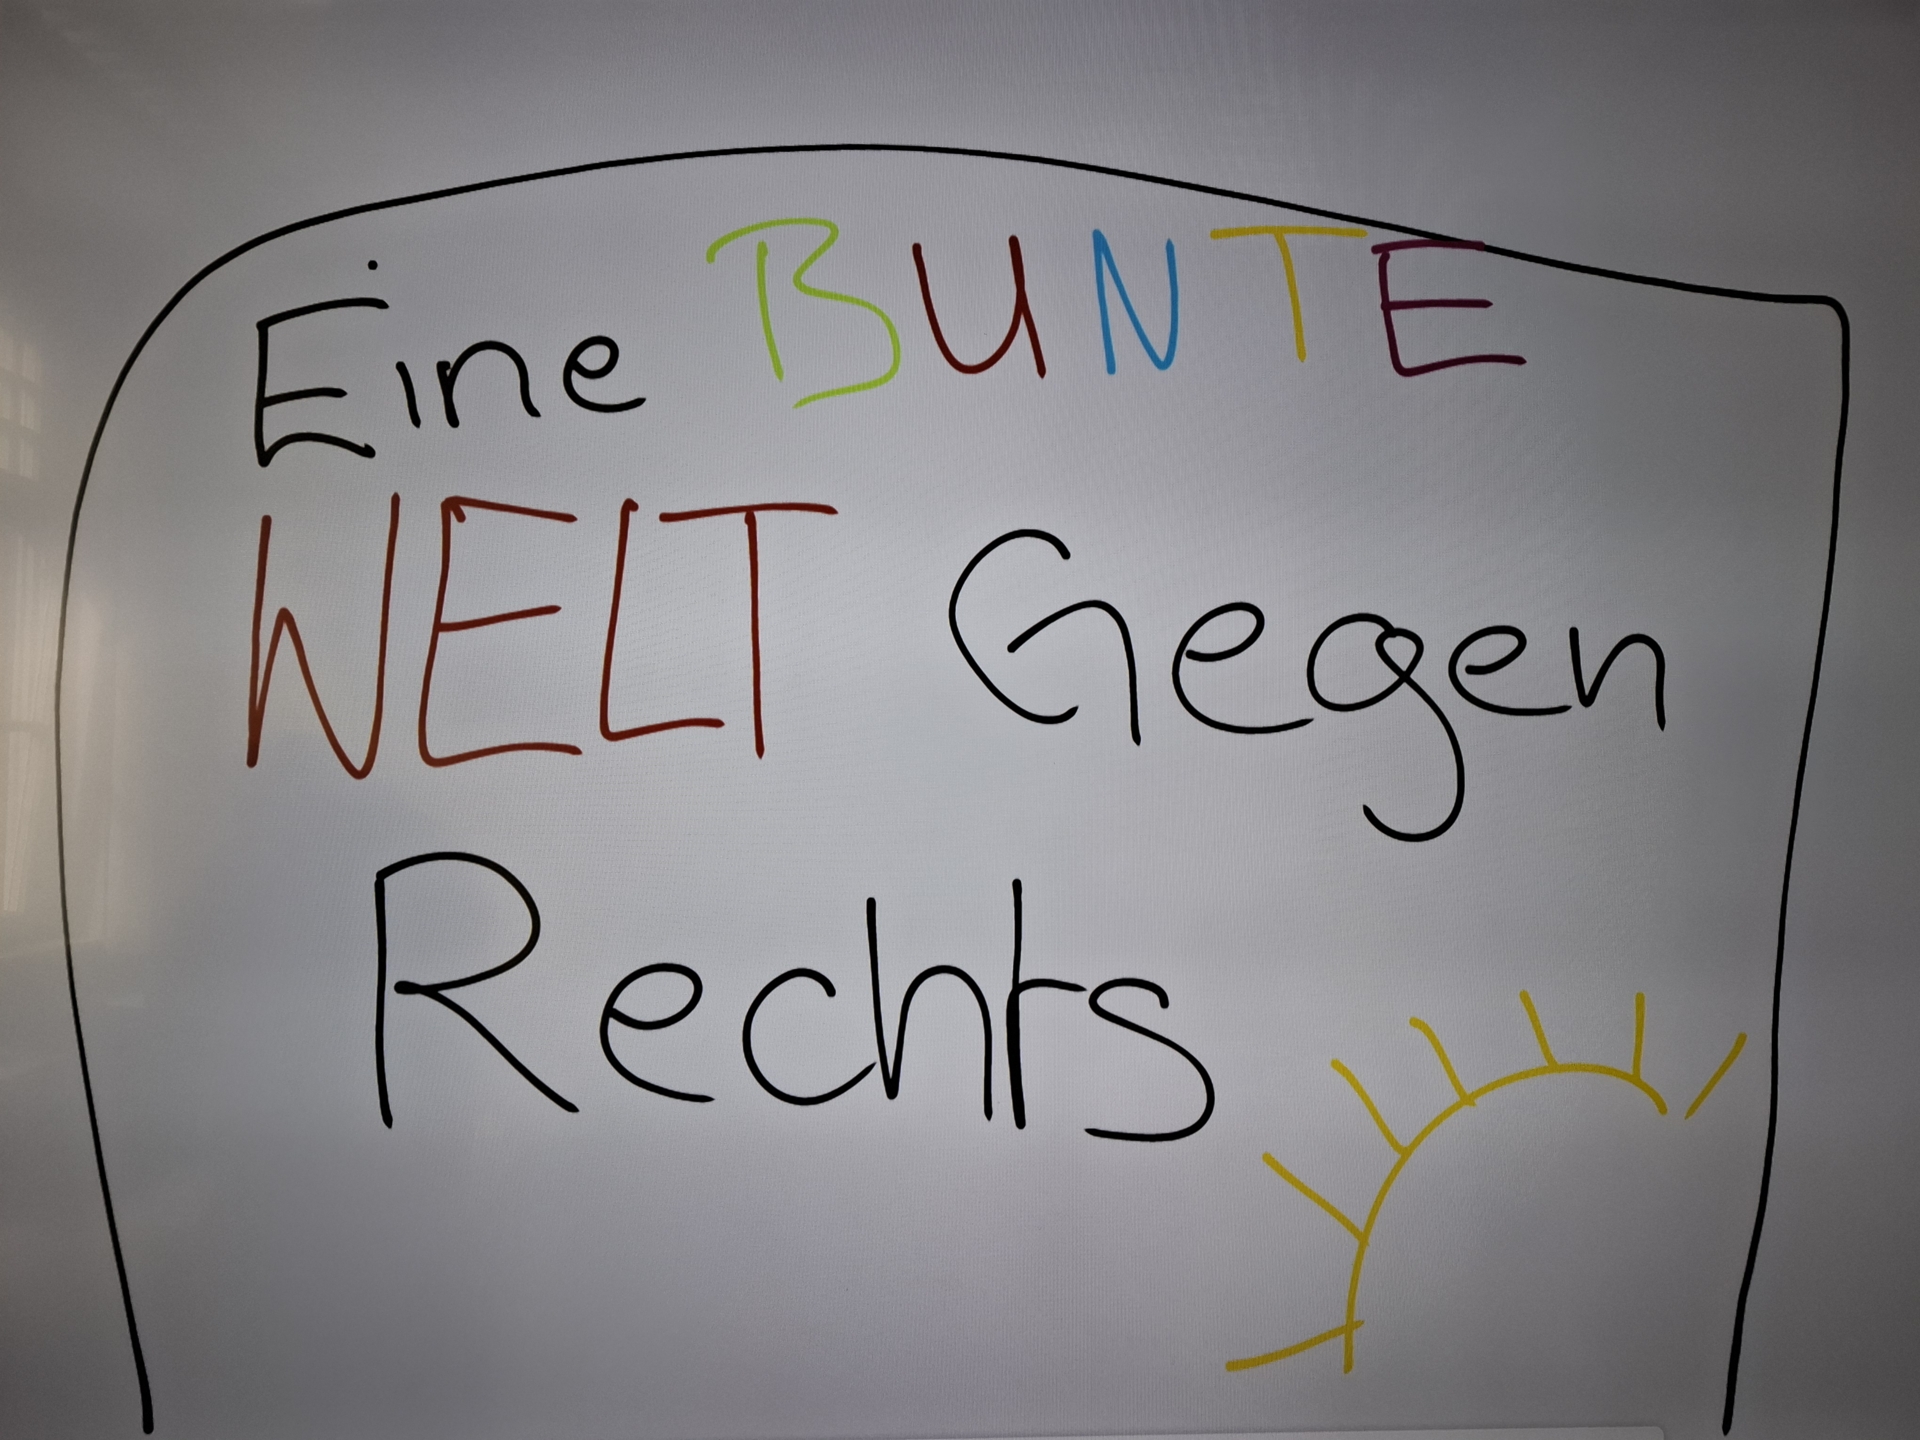 Eine BUNTE
WELT Gegen
Rechts